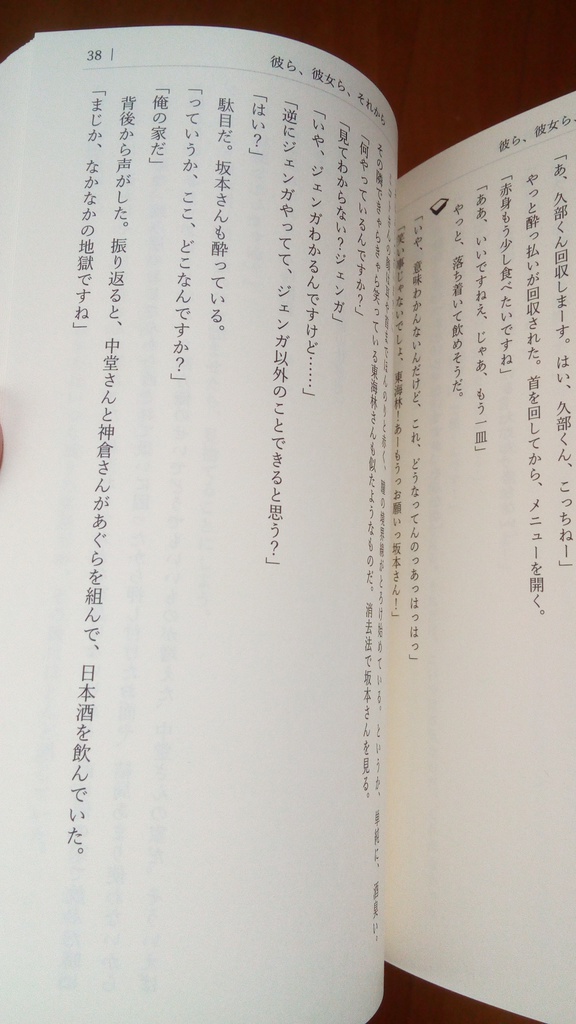 彼ら、彼女ら、
「あ、久部くん回収しまーす。はい、久部くん、こっちねー」
やっと酔っ払いが回収された。首を回してから、メニューを開く。
「赤身もう少し食べたいですね」
「ああ、いいですねえ、じゃあ、もう一皿」
やっと、落ち着いて飲めそうだ。
「いや、意味わかんないんだけど、これ、どうなってんのっあっはっはっ」
「笑い事じゃないでしょ、東海林！あーもうっお願いっ坂本さん！」
38
彼ら、彼女ら、それから
ほんのりと赤く、瞳の境界線がとろけ始めている。というか、単純に、酒臭い。
その隣できゃらきゃら笑っている東海林さんも似たようなものだ。消去法で坂本さんを見る。
「何やっているんですか？」
「見てわからない？ジェンガ」
「いや、ジェンガわかるんですけど……」
「逆にジェンガやってて、ジェンガ以外のことできると思う？」
「はい？」
駄目だ。坂本さんも酔っている。
「っていうか、ここ、どこなんですか？」
「俺の家だ」
背後から声がした。振り返ると、中堂さんと神倉さんがあぐらを組んで、日本酒を飲んでいた。
「まじか、なかなかの地獄ですね」